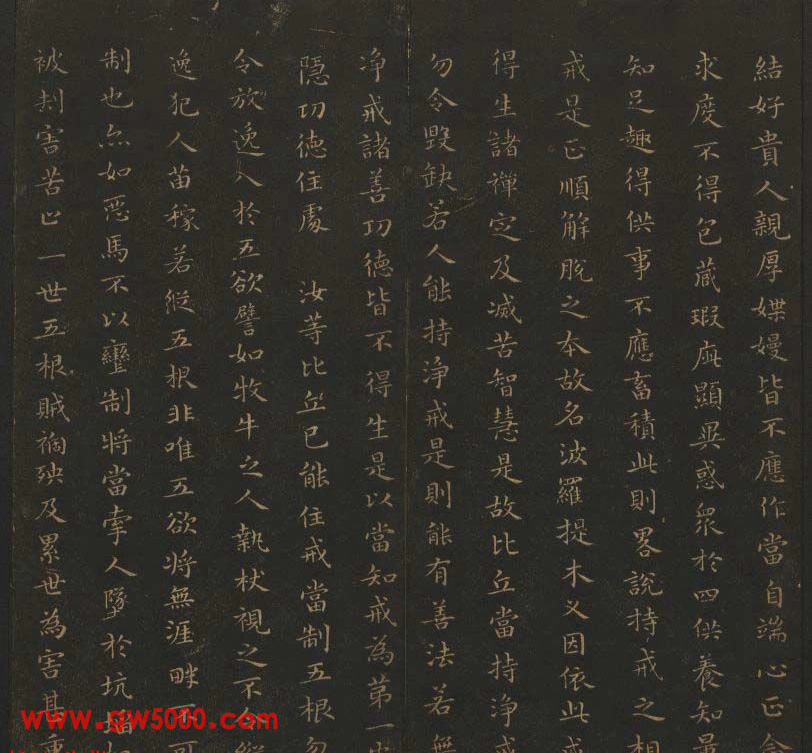 結好貴人親厚媟嫚皆不應作當自端心正念
求度不得包藏瑕疵顯異惑眾於四供養知量
知足趣得供事不應畜積此則畧說持戒之相
戒是正順解脫之本故名波羅提木叉因依此戒
得生諸禪定及滅苦智慧是故比丘當持淨戒
勿令毀缺若人能持淨戒是則能有善法若無
淨戒諸善功德皆不得生是以當知戒為第一安
隱功德住處 汝等比丘已能住戒當制五根勿
令放逸入於五欲譬如牧牛之人執杖視之不令縱
逸犯人苗稼若縱五根非唯五欲將無涯畔不可
制也亦如惡馬不以轡制將當牽人墜於坑埳
被刦害苦止一世五根賊禍殃及累世為害甚重
www.gw5000.com